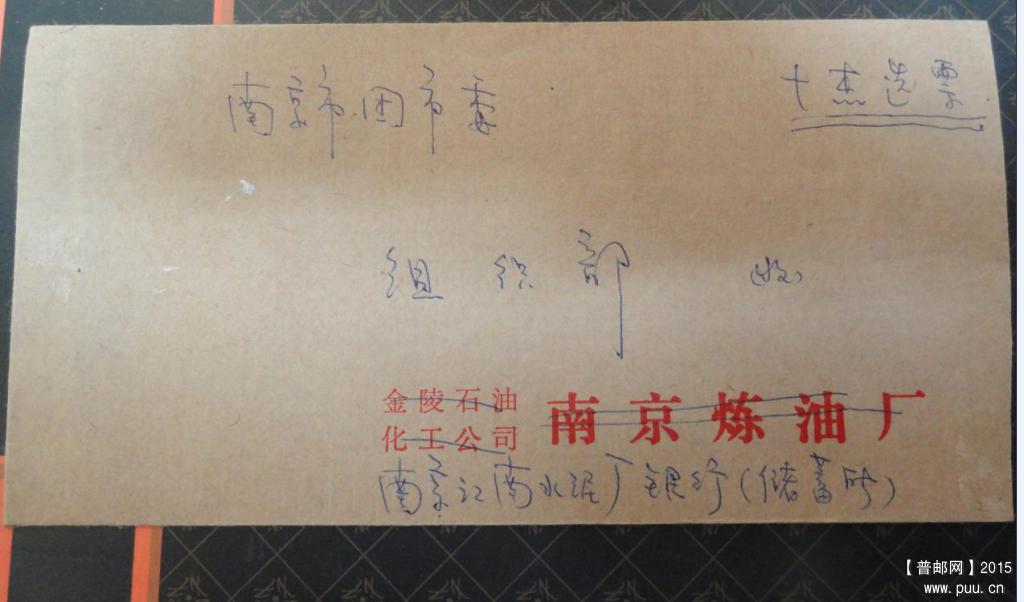 南京市团市委
十杰选票
组织部 收
金陵石油
化工公司
南京炼油厂
南京江南水泥厂银行(储蓄所)
【普邮网】2015
www.puu.cn